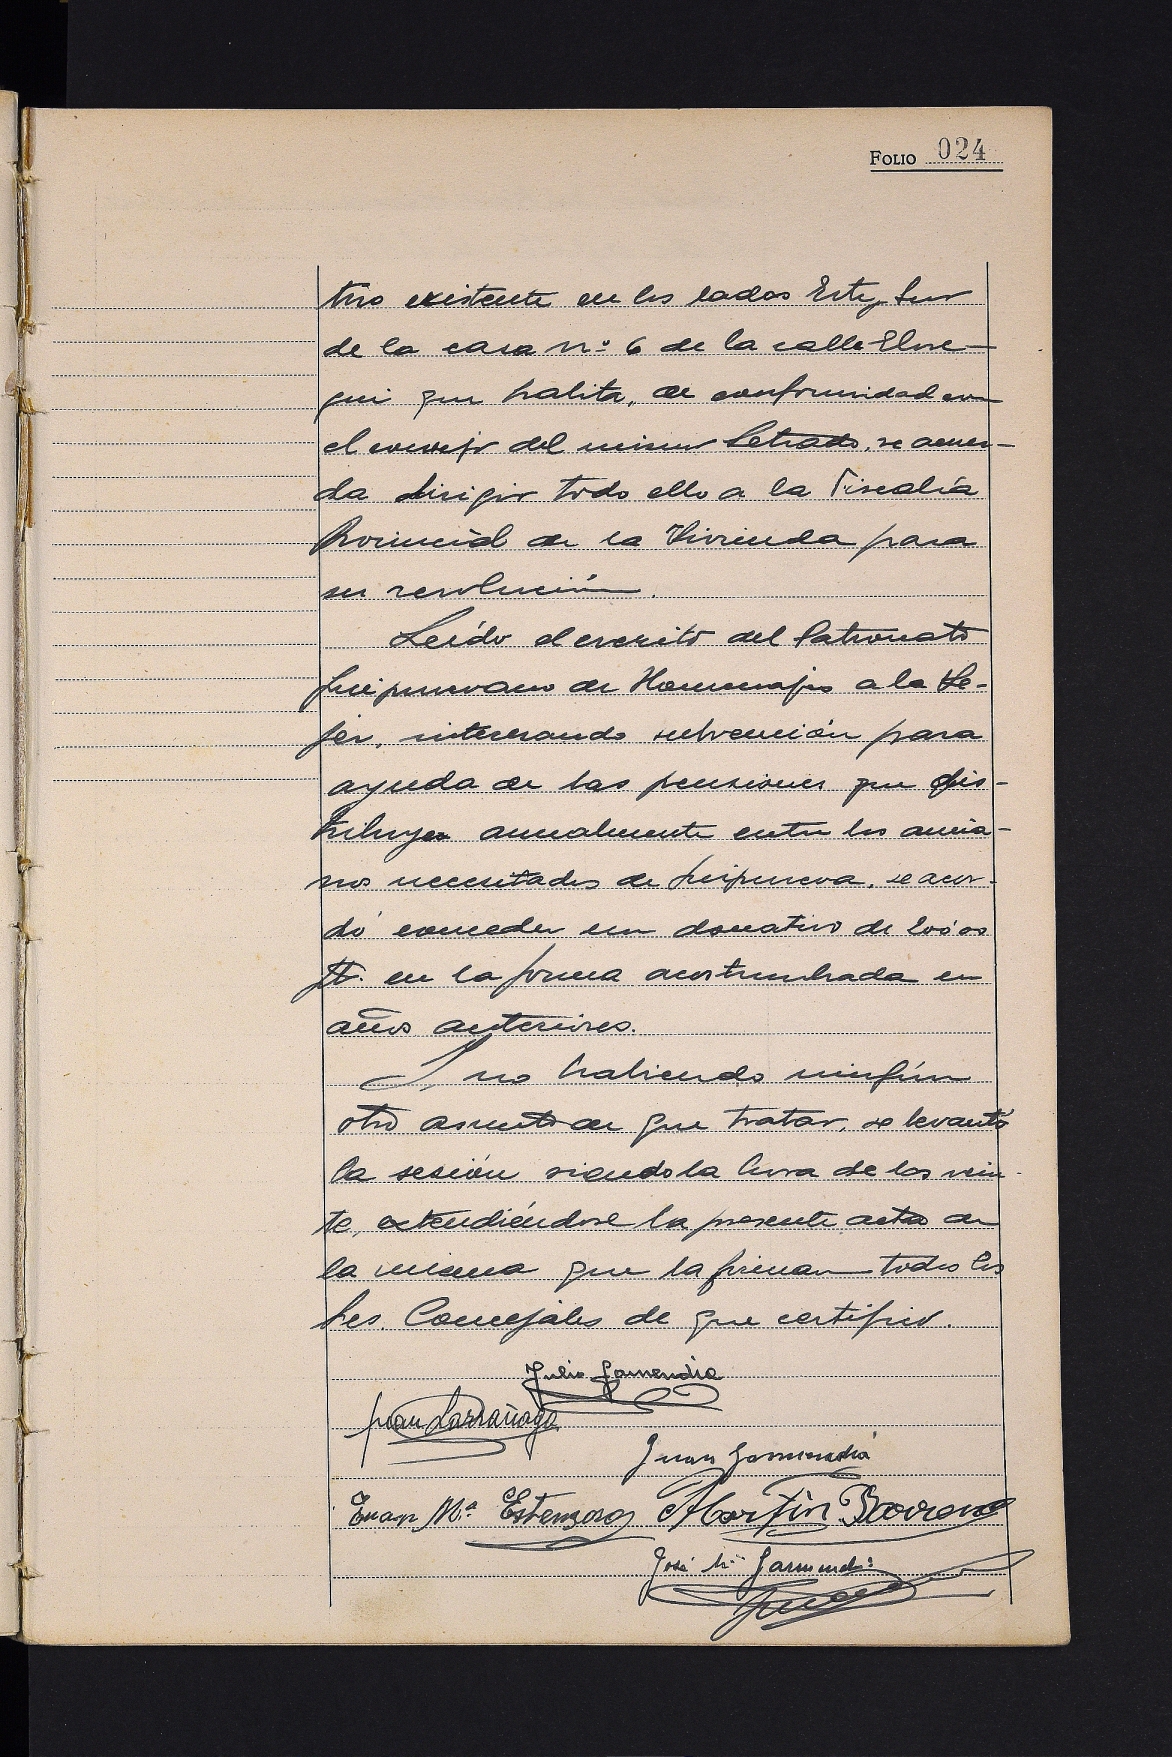 FOLIO 024
tivo existente en los lados Este y Sur
de la casa nº 6 de la calle Elose-
gui que habita, de conformidad con
el consejo del mismo Letrado, se acuer-
da dirigir todo ello a la Fiscalía
Provincial de la Vivienda para
su resolución.
Leído el escrito del Patronato
Guipuzcoano de Homenajes a la Ve-
jez, interesando subvención para
ayuda de las pensiones que dis-
tribuyen anualmente entre los ancia-
nos necesitados de Guipuzcoa, se acor-
dó conceder un donativo de
pts. en la forma acostumbrada en
años anteriores.
Y no habiendo ningún
otro asunto de que tratar, se levantó
la sesión siendo la hora de las vein-
te, extendiéndose la presente acta de
la misma que la firman todos los
Sres. Concejales de que certifico.
Julio Garmendia
Juan Larrañaga
Juan Garmendia
Juan Mª Estensoro Martin Barrena
José Mª Garmendia